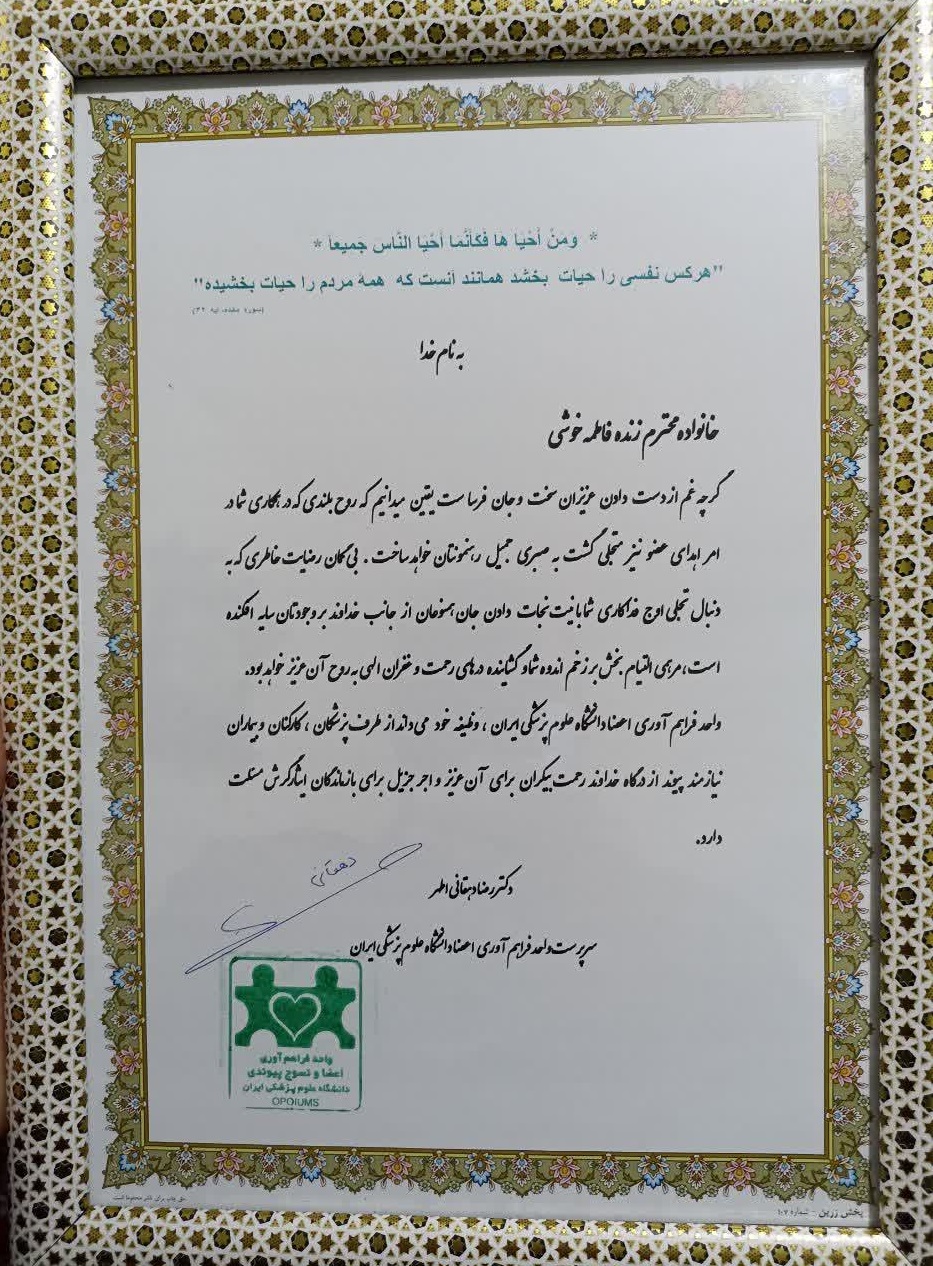 * وَمَنْ أَحْيَا هَا فَكَأَنَّمَا أَحْيَا النَّاسَ جَمیعاً *
"هرکس نفسی را حیات بخشد همانند آنست که همهٔ مردم را حیات بخشیده"
به نام خدا
خانواده محترم زنده فاطمه خوشی
گرچه غم از دست دادن عزیزان سخت و جان فرساست یقین میدانیم که روح بلندی که در همکاری شما در
امر اهدای عضو نیز متجلی گشت به صبری جمیل رهنمونتان خواهد ساخت . بی گمان رضایت خاطری که به
دنبال تجلی اوج فداکاری شما با نیت نجات دادن جان همنوعان از جانب خداوند بر وجودتان سایه افکنده
است، مرهمی التیام بخش بر زخم اندوه شما و گشاینده درهای رحمت و غفران الهی به روح آن عزیز خواهد بود.
واحد فراهم آوری اعضا دانشگاه علوم پزشکی ایران ، وظیفه خود می داند از طرف پزشکان ، کارکنان و بیماران
نیازمند پیوند از درگاه خداوند رحمت بیکران برای آن عزیز و اجر جزیل برای بازماندگان ایثارگرش مسئلت
دارد.
دهقانی
دکتر رضا دهقانی اطهر
سرپرست واحد فراهم آوری اعضا دانشگاه علوم پزشکی ایران
واحد فراهم آوری
اعضا و نسوج پیوندی
دانشگاه علوم پزشکی ایران
OPOIUMS
حق چاپ برای ناشر محفوظ است
پخش زرین - شماره ۱۰۷